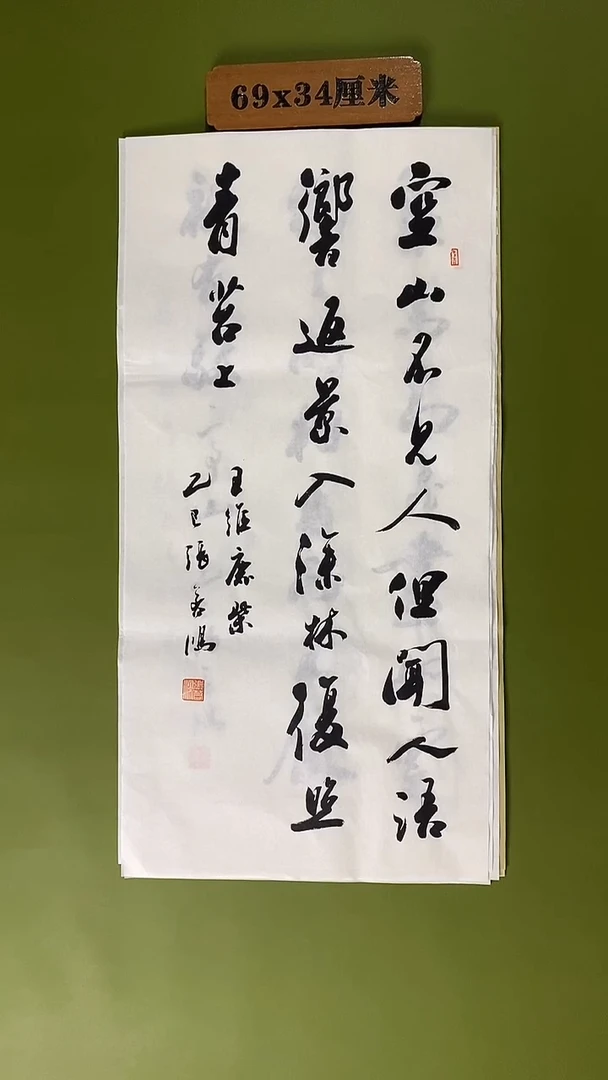 69x34厘米
空山不見人但聞人語
響返景入深林復照
青苔上
王維鹿柴
乙巳張善鴻